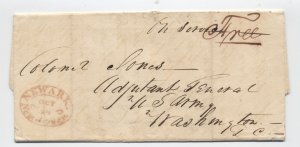 On service
Free
Colonel Jones
Adjutant General
U S Army
Washington
D.C.
NEWARK
OCT